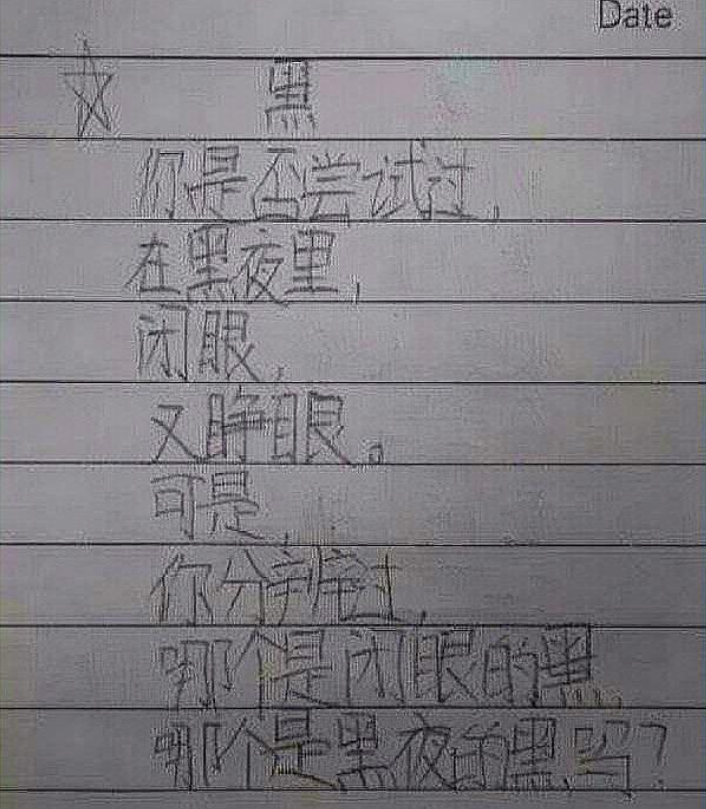 Date
☆ 黑
你是否尝试过，
在黑夜里，
闭眼，
又睁眼。
可是，
你分辨过，
哪个是闭眼的黑，
哪个是黑夜的黑吗？